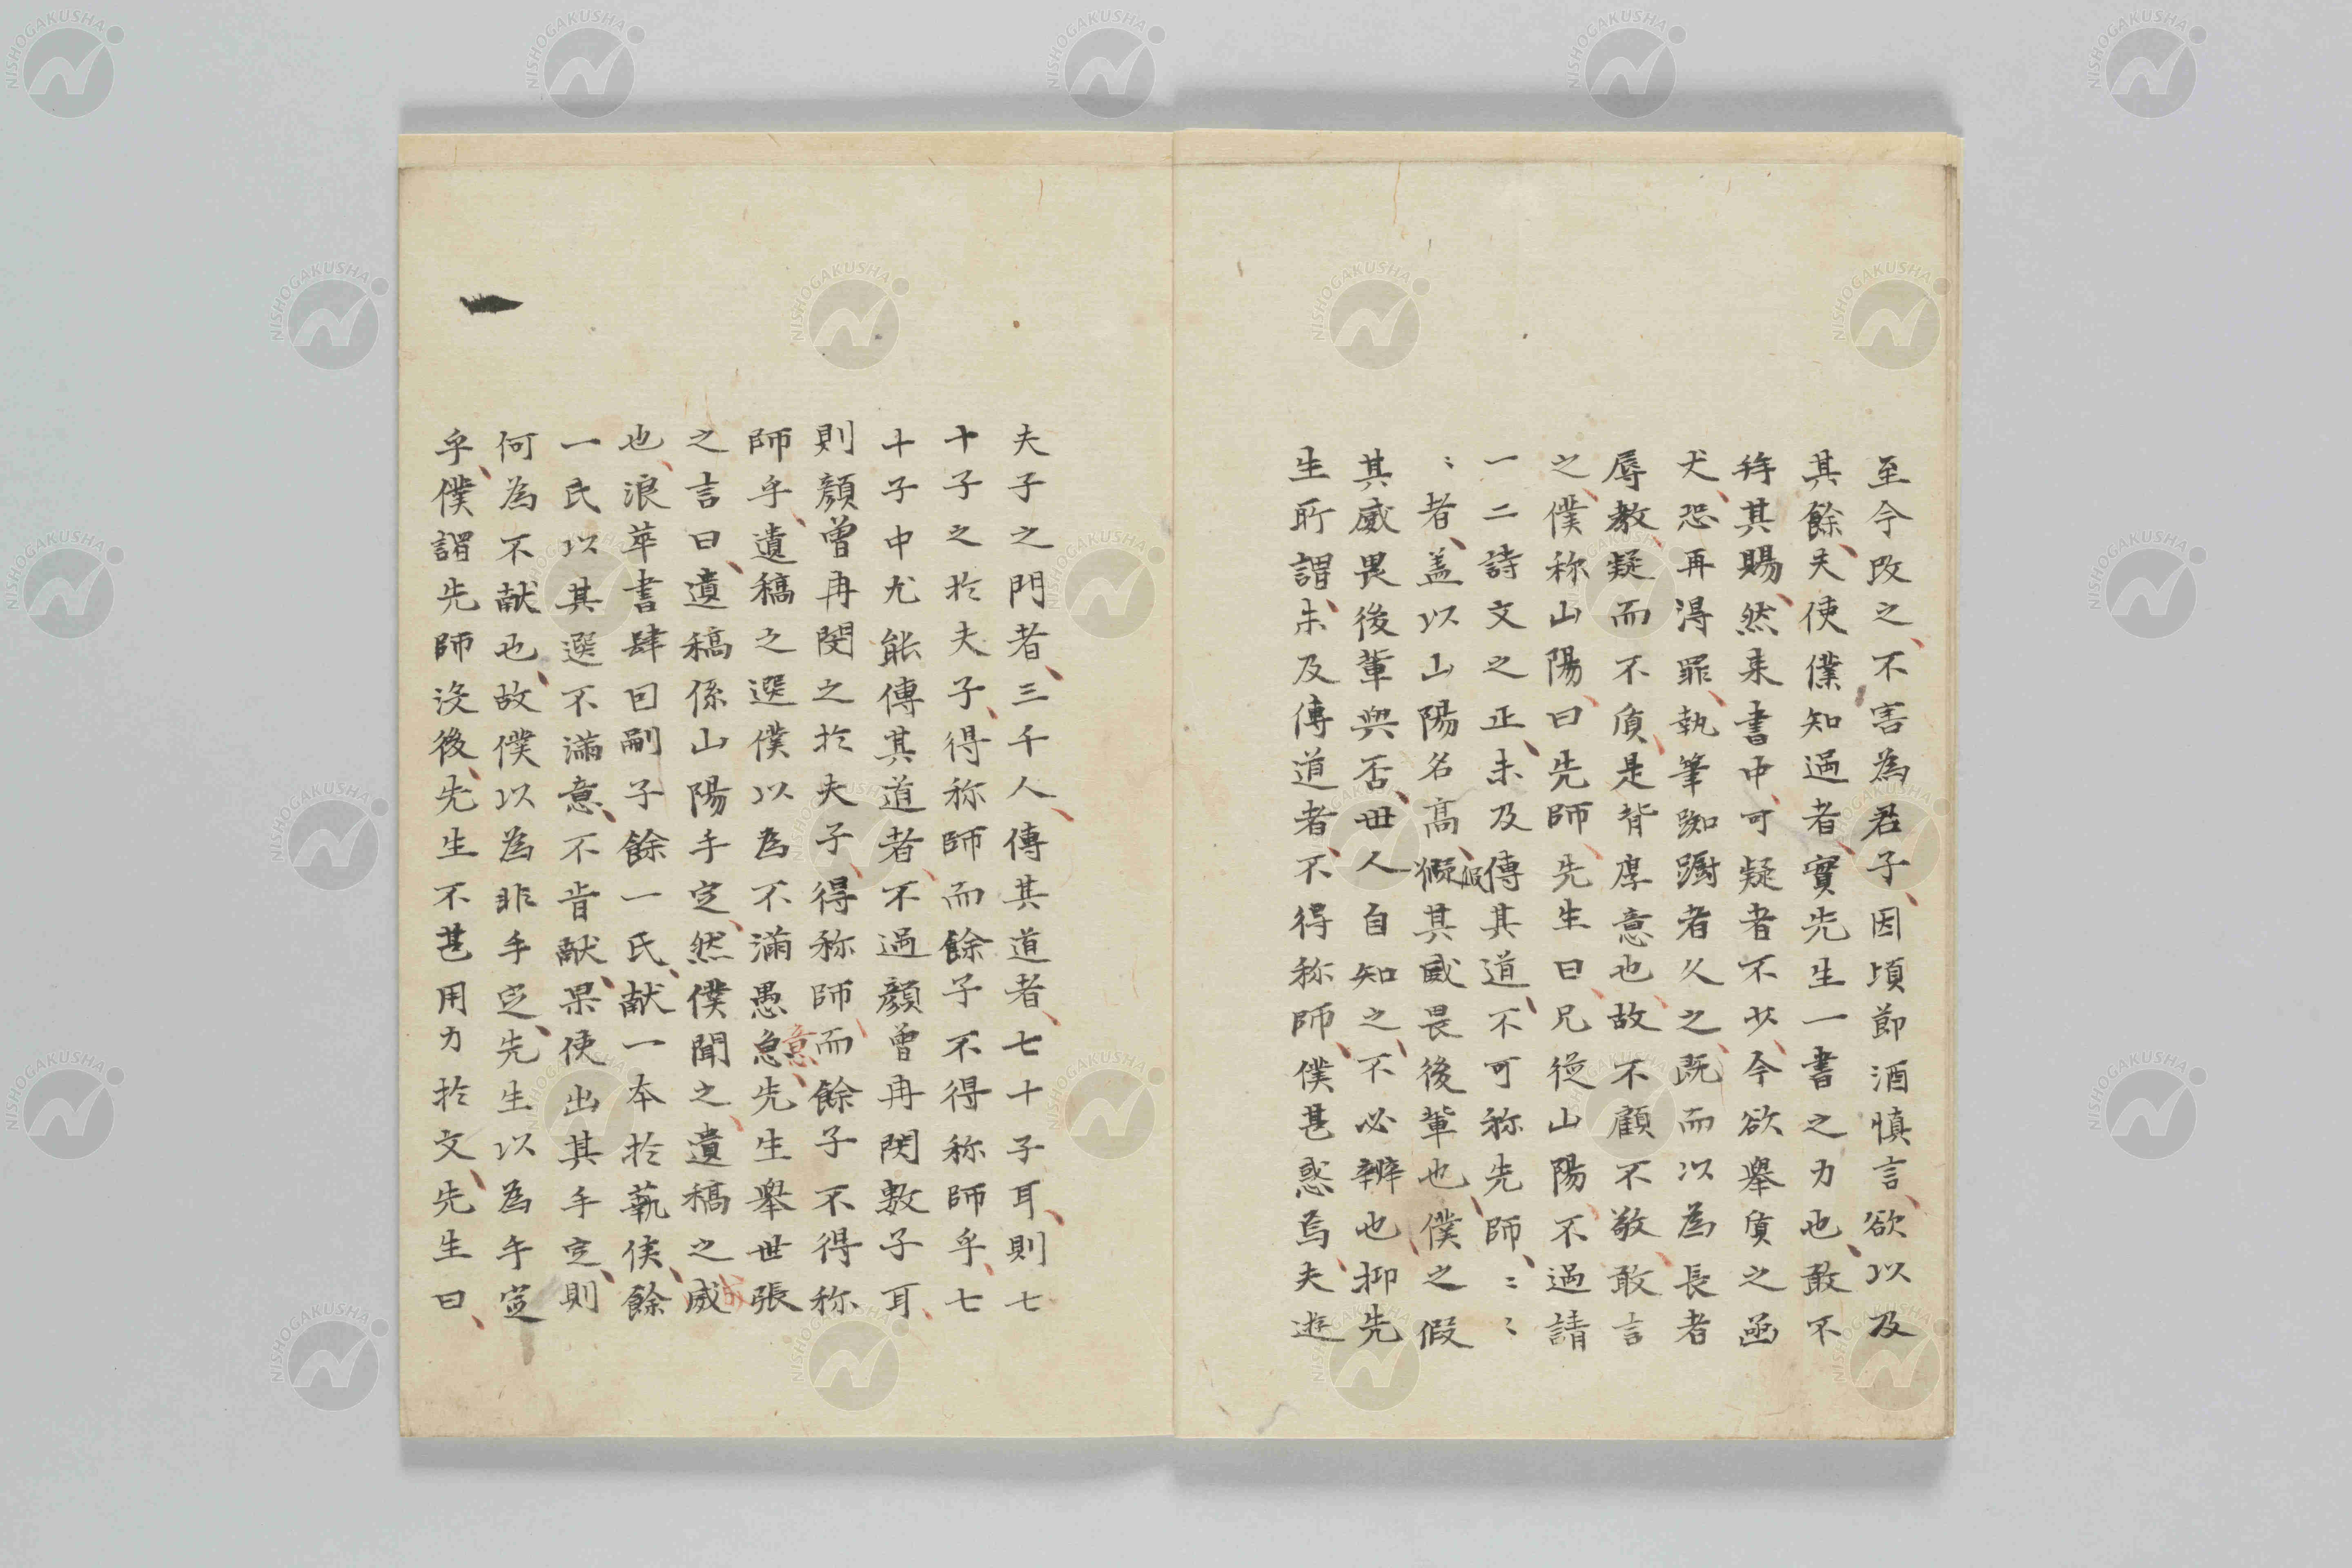 至今改之不害為君子因頃節酒慎言欲以及
其餘夫使僕知過者實先生一書之力也敢不
拜其賜然来書中可疑者不少今欲舉質之函
丈恐再得罪執筆踟蹰者久之既而以為長者
辱教疑而不質是背厚意也故不顧不敬敢言
之僕称山陽曰先師先生曰兄從山陽不過請
一二詩文之正未及傳其道不可称先師〻〻
〻者盖以山陽名高假其威畏後輩也僕之假
其威畏後輩與否毋人自知之不必辨也抑先
生所謂未及傳道者不得称師僕甚惑焉夫遊
夫子之門者三千人傳其道者七十子耳則七
十子之於夫子得称師而餘子不得称師乎七
十子中尤能傳其道者不過顔曾冉閔數子耳
則顔曾冉閔之於夫子得称師而餘子不得称
師乎遺稿之選僕以為不滿愚意先生舉世張
之言曰遺稿係山陽手定然僕聞之遺稿之成
也浪華書肆囙嗣子餘一氏献一本於藝侯餘
一氏以其選不滿意不肯献果使出其手定則
何為不献也故僕以為非手定先生以為手定
乎僕謂先師沒後先生不甚用力於文先生曰
NISHOGAKUSHA